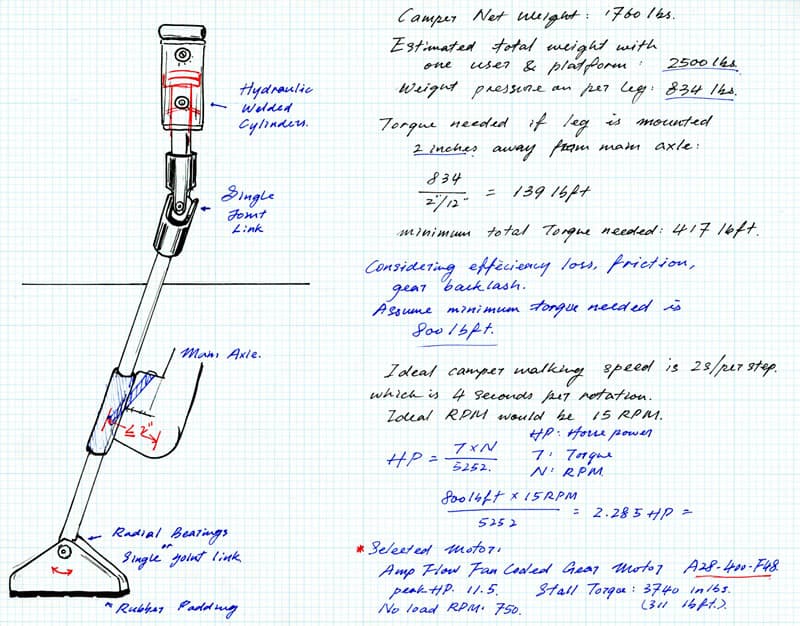 Hydraulic
Welded
Cylinders.
Single
Joint
Link
Main Axle.
≤ 2"
Radial Bearings
or
Single joint link
Rubber Padding
Camper Net Weight: 1760 lbs.
Estimated total weight with
one user & platform: 2500 lbs.
Weight pressure on per leg: 834 lbs.
Torque needed if leg is mounted
2 inches away from main axle:
834
2"/12" = 139 lbft
minimum total Torque needed: 417 lbft.
Considering efficiency loss, friction,
gear backlash.
Assume minimum torque needed is
800 lbft.
Ideal camper walking speed is 2s/per step.
which is 4 seconds per rotation.
Ideal RPM would be 15 RPM.
HP = T×N
5252.
HP: Horse power
T: Torque
N: RPM
800 lbft × 15 RPM
5252 = 2.285 HP =
* Selected Motor:
Amp Flow Fan Cooled Gear Motor A28-400-F48
peak HP. 11.5. Stall Torque: 3740 in lbs.
No load RPM. 750. (311 lbft.)